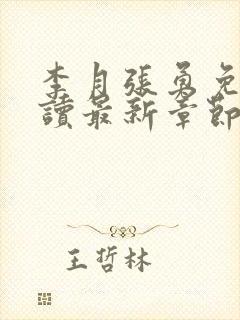 李月張勇免
讀最新章節
王哲林